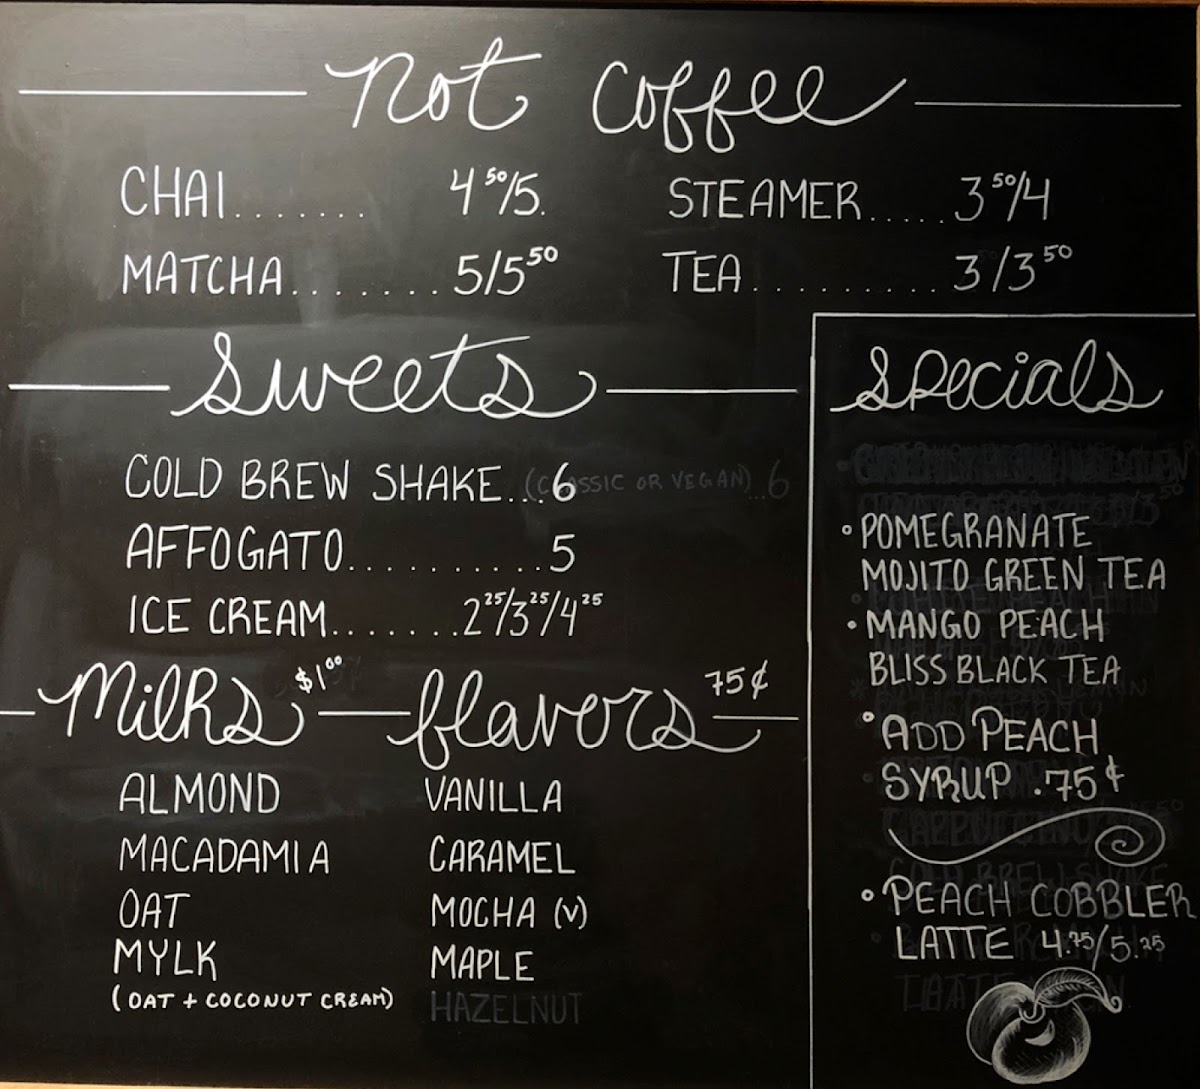 not coffee
CHAI....... 4⁵⁰/5.
STEAMER..... 3⁵⁰/4
MATCHA....... 5/5⁵⁰
TEA.......... 3/3⁵⁰
sweets
COLD BREW SHAKE... 6
(CLASSIC OR VEGAN)...6
AFFOGATO.......... 5
ICE CREAM....... 2²⁵/3²⁵/4²⁵
Milks $1⁰⁰
ALMOND
MACADAMIA
OAT
MYLK
(OAT + COCONUT CREAM)
flavors 75¢
VANILLA
CARAMEL
MOCHA (V)
MAPLE
HAZELNUT
specials
• POMEGRANATE
MOJITO GREEN TEA
• MANGO PEACH
BLISS BLACK TEA
• ADD PEACH
SYRUP .75¢
• PEACH COBBLER
LATTE 4.75/5.25